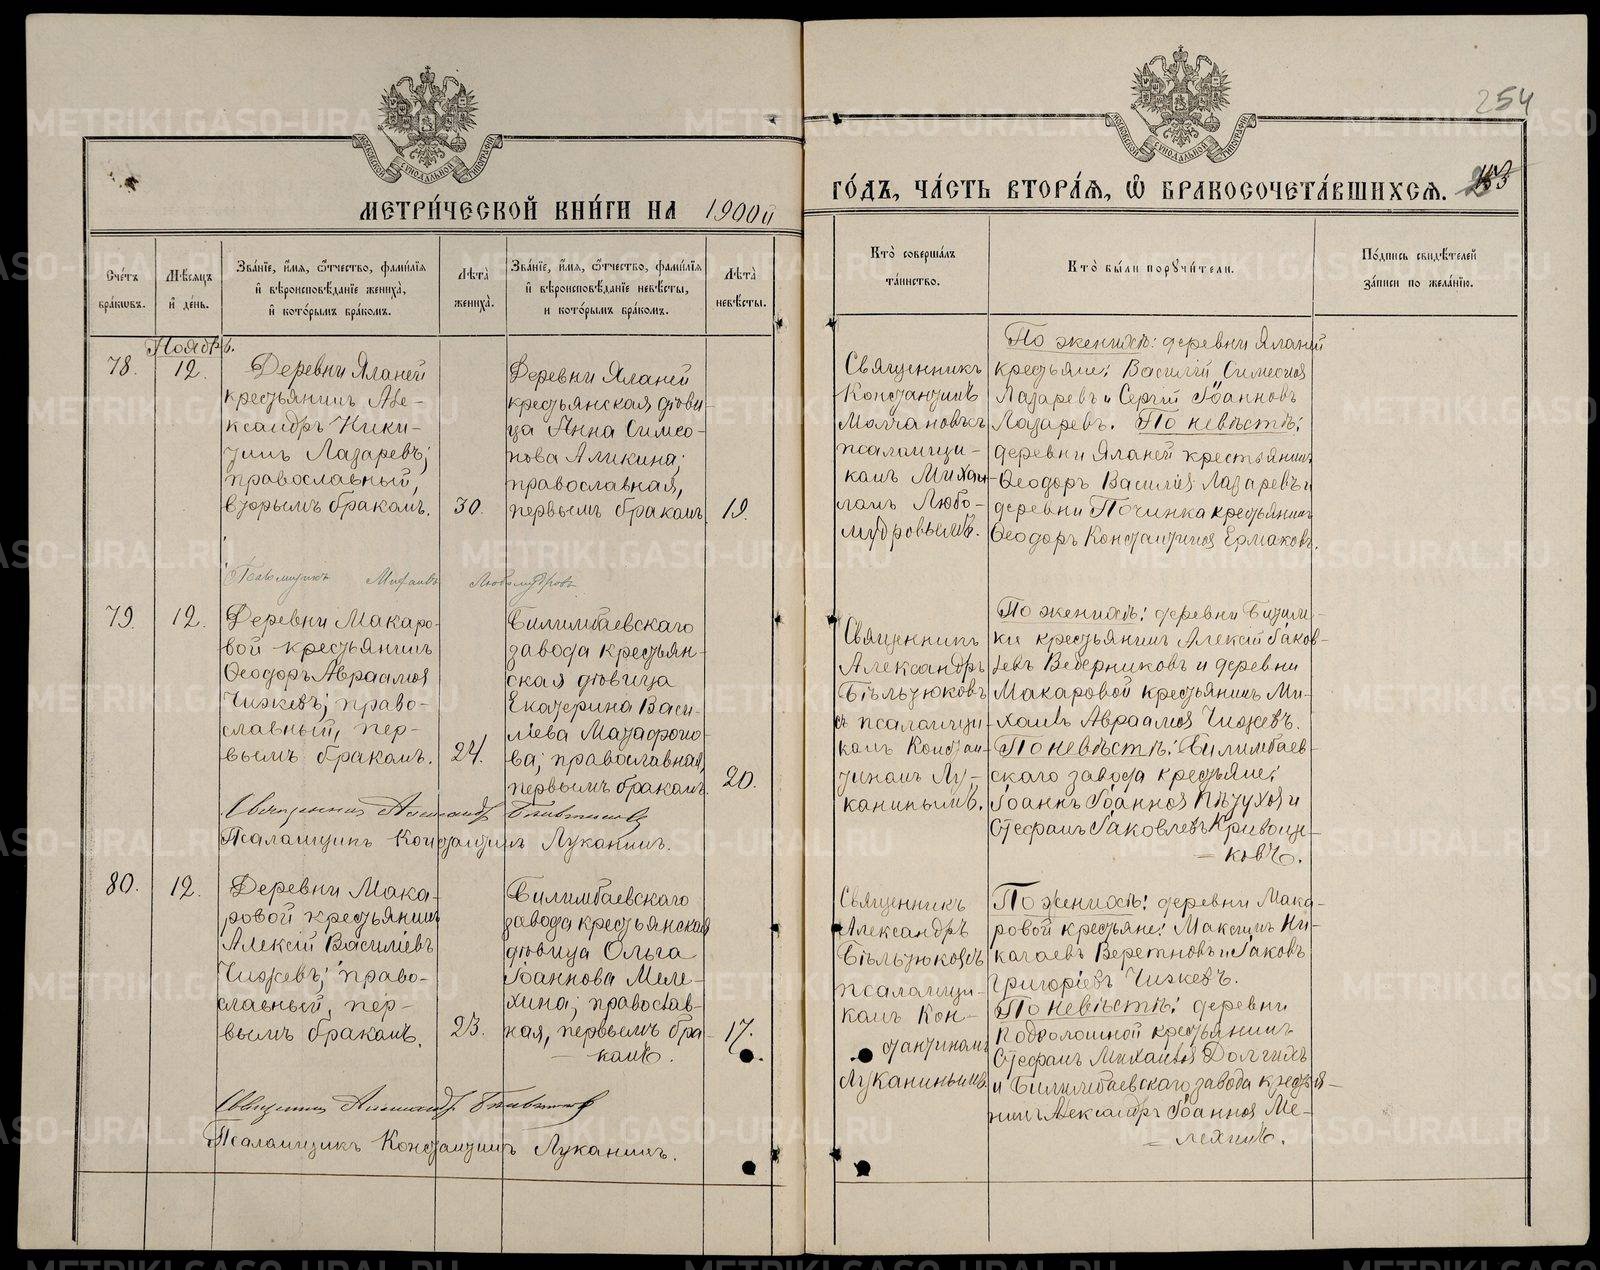 254
МЕТРИ́ЧЕСКОЙ КНИ́ГИ НА 1900й
ГО́ДЪ, ЧА́СТЬ ВТОРА́Я, Ѿ БРАКОСОЧЕТА́ВШИХСЯ.
Сче́тъ бра́ковъ.
Мѣсяцъ и҆ де́нь.
Зва́нїе, и҆́мя, ѻ҆́тчество, фами́лїя
и҆ вѣроисповѣ́данїе жениха̀,
и҆ кото́рымъ бра́комъ.
Лѣта̀ жениха̀.
Зва́нїе, и҆́мя, ѻ҆́тчество, фами́лїя
и҆ вѣроисповѣ́данїе невѣ́сты,
и кото́рымъ бра́комъ.
Лѣта̀ невѣ́сты.
Кто̀ соверша́лъ
та́инство.
Кто̀ бы́ли порꙋчи́тели.
По́дпись свидѣ́телей
за́писи по жела́нїю.
Ноябрь.
78.
12.
Деревни Яланей
крестьянинъ Але-
ксандръ Ники-
тинъ Лазаревъ;
православный,
вторымъ бракомъ.
30.
Деревни Яланей
крестьянская дѣви-
ца Анна Симео-
нова Аликина;
православная,
первымъ бракомъ.
19.
Священникъ
Константинъ
Молчановъ съ
псаломщи-
комъ Михаи-
ломъ Любо-
мудровымъ.
По женихѣ: деревни Яланей
крестьяне: Василій Симеонов
Лазаревъ и Сергій Іоанновъ
Лазаревъ. По невѣстѣ:
деревни Яланей крестьянинъ
Ѳеодоръ Василіев Лазаревъ и
деревни Починка крестьянинъ
Ѳеодоръ Константинов Ермаковъ.
Псаломщикъ Михаилъ Любомудровъ
79.
12.
Деревни Макаро-
вой крестьянинъ
Ѳеодоръ Авраамов
Чижевъ; право-
славный, пер-
вымъ бракомъ.
24.
Билимбаевскаго
завода крестьян-
ская дѣвица
Екатерина Васи-
ліева Мазафроно-
ва; православная,
первымъ бракомъ.
20.
Священникъ
Александръ
Бѣльтюковъ
съ псаломщи-
комъ Констан-
тиномъ Лу-
канинымъ.
По женихѣ: деревни Битим-
ки крестьянинъ Алексій Іаков-
левъ Ведерниковъ и деревни
Макаровой крестьянинъ Ми-
хаилъ Авраамов Чижевъ.
По невѣстѣ: Билимбаев-
скаго завода крестьяне:
Іоаннъ Іоаннов Пѣтухов и
Стефанъ Іаковлевъ Кривощо-
ковъ.
Священникъ Александръ Бѣльтюковъ
Псаломщикъ Константинъ Луканинъ.
80.
12.
Деревни Мака-
ровой крестьянинъ
Алексій Василіевъ
Чижевъ; право-
славный, пер-
вымъ бракомъ.
23.
Билимбаевскаго
завода крестьянская
дѣвица Ольга
Іоаннова Меле-
хина; православ-
ная, первымъ бра-
комъ.
17.
Священникъ
Александръ
Бѣльтюковъ съ
псаломщи-
комъ Кон-
стантиномъ
Луканинымъ.
По женихѣ: деревни Мака-
ровой крестьяне: Максимъ Ни-
колаевъ Веретновъ и Іаковъ
Григоріевъ Чижевъ.
По невѣстѣ: деревни
Подволошной крестьянинъ
Стефанъ Михаилов Долгихъ
и Билимбаевскаго завода крестья-
нинъ Александръ Іоаннов Ме-
лехинъ.
Священникъ Александръ Бѣльтюковъ
Псаломщикъ Константинъ Луканинъ.
METRIKI.GASO-URAL.RU